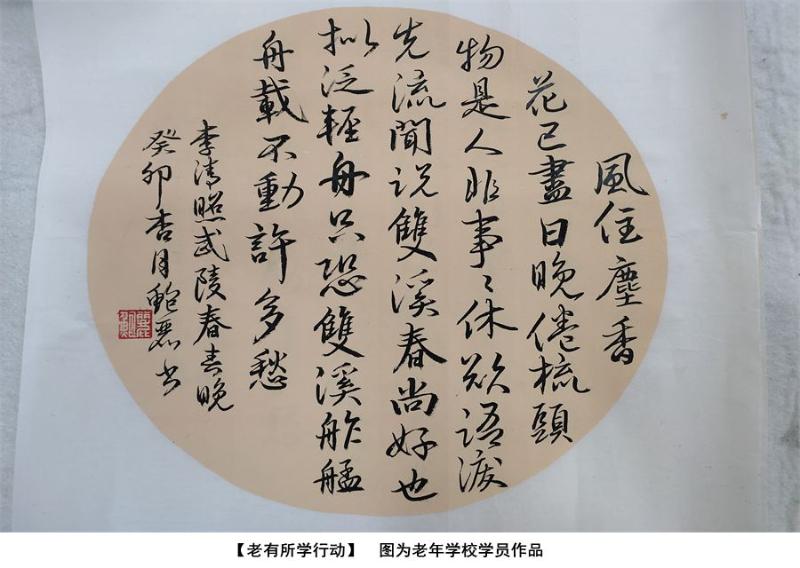 風住塵香
花已盡日晚倦梳頭
物是人非事〻休欲語淚
先流聞説雙溪春尚好也
拟泛輕舟只恐雙溪舴艋
舟載不動許多愁
李清照武陵春春晚
癸卯杏月鲍书
【老有所学行动】 图为老年学校学员作品